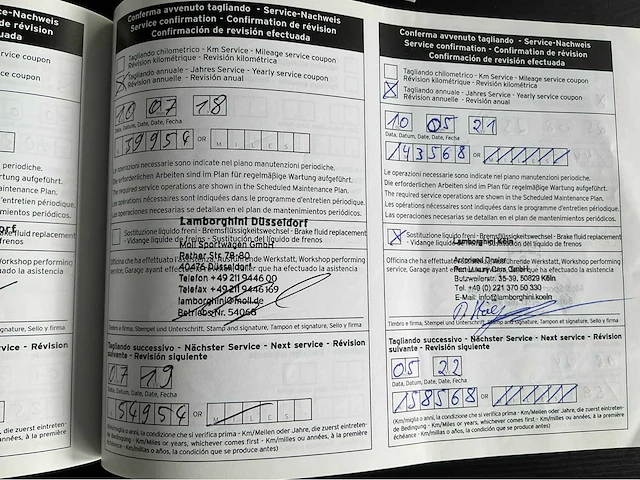 Service-Nachweis
de révision
uada
rvice coupon
ce coupon
periodiche.
rtung aufgeführt.
aintenance Plan.
d'entretien périodique.
mientos periódicos.
fluid replacement
frenos
Workshop performing
a la asistencia
ignature, Sello y firma
rvice - Révision
uote, die zuerst eintreten-
années, à la première
Conferma avvenuto tagliando - Service-Nachweis
Service confirmation - Confirmation de révision
Confirmación de revisión efectuada
Tagliando chilometrico - Km Service - Mileage service coupon
Révision kilométrique - Revisión kilométrica
Tagliando annuale - Jahres Service - Yearly service coupon
Révision annuelle - Revisión anual
10 07 18
Data, Datum, Date, Date, Fecha
39954 OR MILES
Le operazioni necessarie sono indicate nel piano manutenzioni periodiche.
Die erforderlichen Arbeiten sind im Plan für regelmäßige Wartung aufgeführt.
The required service operations are shown in the Scheduled Maintenance Plan.
Les opérations nécessaires sont indiquées dans le programme d'entretien périodique.
Las operaciones necesarias se detallan en el plan de mantenimientos periódicos.
Lamborghini Düsseldorf
Sostituzione liquido freni - Bremsflüssigkeitswechsel - Brake fluid replacement
- Vidange liquide de freins - Sustitución del líquido de frenos
Moll Sportwagen GmbH
Rather Str. 78-80
40476 Düsseldorf
Telefon +49 211 9446 00
Telefax +49 211 9446 169
lamborghini@moll.de
Betriebs-Nr. 54068
Timbro e firma, Stempel und Unterschrift, Stamp and signature, Tampon et signature, Sello y firma
Tagliando successivo - Nächster Service - Next service - Révision
suivante - Revisión siguiente
07 19
Data, Datum, Date, Date, Fecha
54954 OR MILES
(Km/miglia o anni, la condizione che si verifica prima - Km/Meilen oder Jahre, die zuerst eintreten-
de Bedingung - Km/Miles or years, whichever comes first - Km/milles ou années, à la première
échéance - Km/millas o años, la condición que se produce antes)
Conferma avvenuto tagliando - Service-Nachweis
Service confirmation - Confirmation de révision
Confirmación de revisión efectuada
Tagliando chilometrico - Km Service - Mileage service coupon
Révision kilométrique - Revisión kilométrica
Tagliando annuale - Jahres Service - Yearly service coupon
Révision annuelle - Revisión anual
10 05 21
Data, Datum, Date, Date, Fecha
143568 OR
Le operazioni necessarie sono indicate nel piano manutenzioni periodiche.
Die erforderlichen Arbeiten sind im Plan für regelmäßige Wartung aufgeführt.
The required service operations are shown in the Scheduled Maintenance Plan.
Les opérations nécessaires sont indiquées dans le programme d'entretien périodique.
Las operaciones necesarias se detallan en el plan de mantenimientos periódicos.
Sostituzione liquido freni - Bremsflüssigkeitswechsel - Brake fluid replacement
- Vidange liquide de freins - Sustitución del líquido de frenos
Lamborghini Köln
Butzweilerstr. 35-39, 50829 Köln
Tel. +49 (0) 221 370 50 330
E-Mail: info@lamborghini.koeln
Timbro e firma, Stempel und Unterschrift, Stamp and signature, Tampon et signature, Sello y firma
Tagliando successivo - Nächster Service - Next service - Révision
suivante - Revisión siguiente
05 22
Data, Datum, Date, Date, Fecha
158568 OR
(Km/miglia o anni, la condizione che si verifica prima - Km/Meilen oder Jahre, die zuerst eintreten-
de Bedingung - Km/Miles or years, whichever comes first - Km/milles ou années, à la première
échéance - Km/millas o años, la condición que se produce antes)